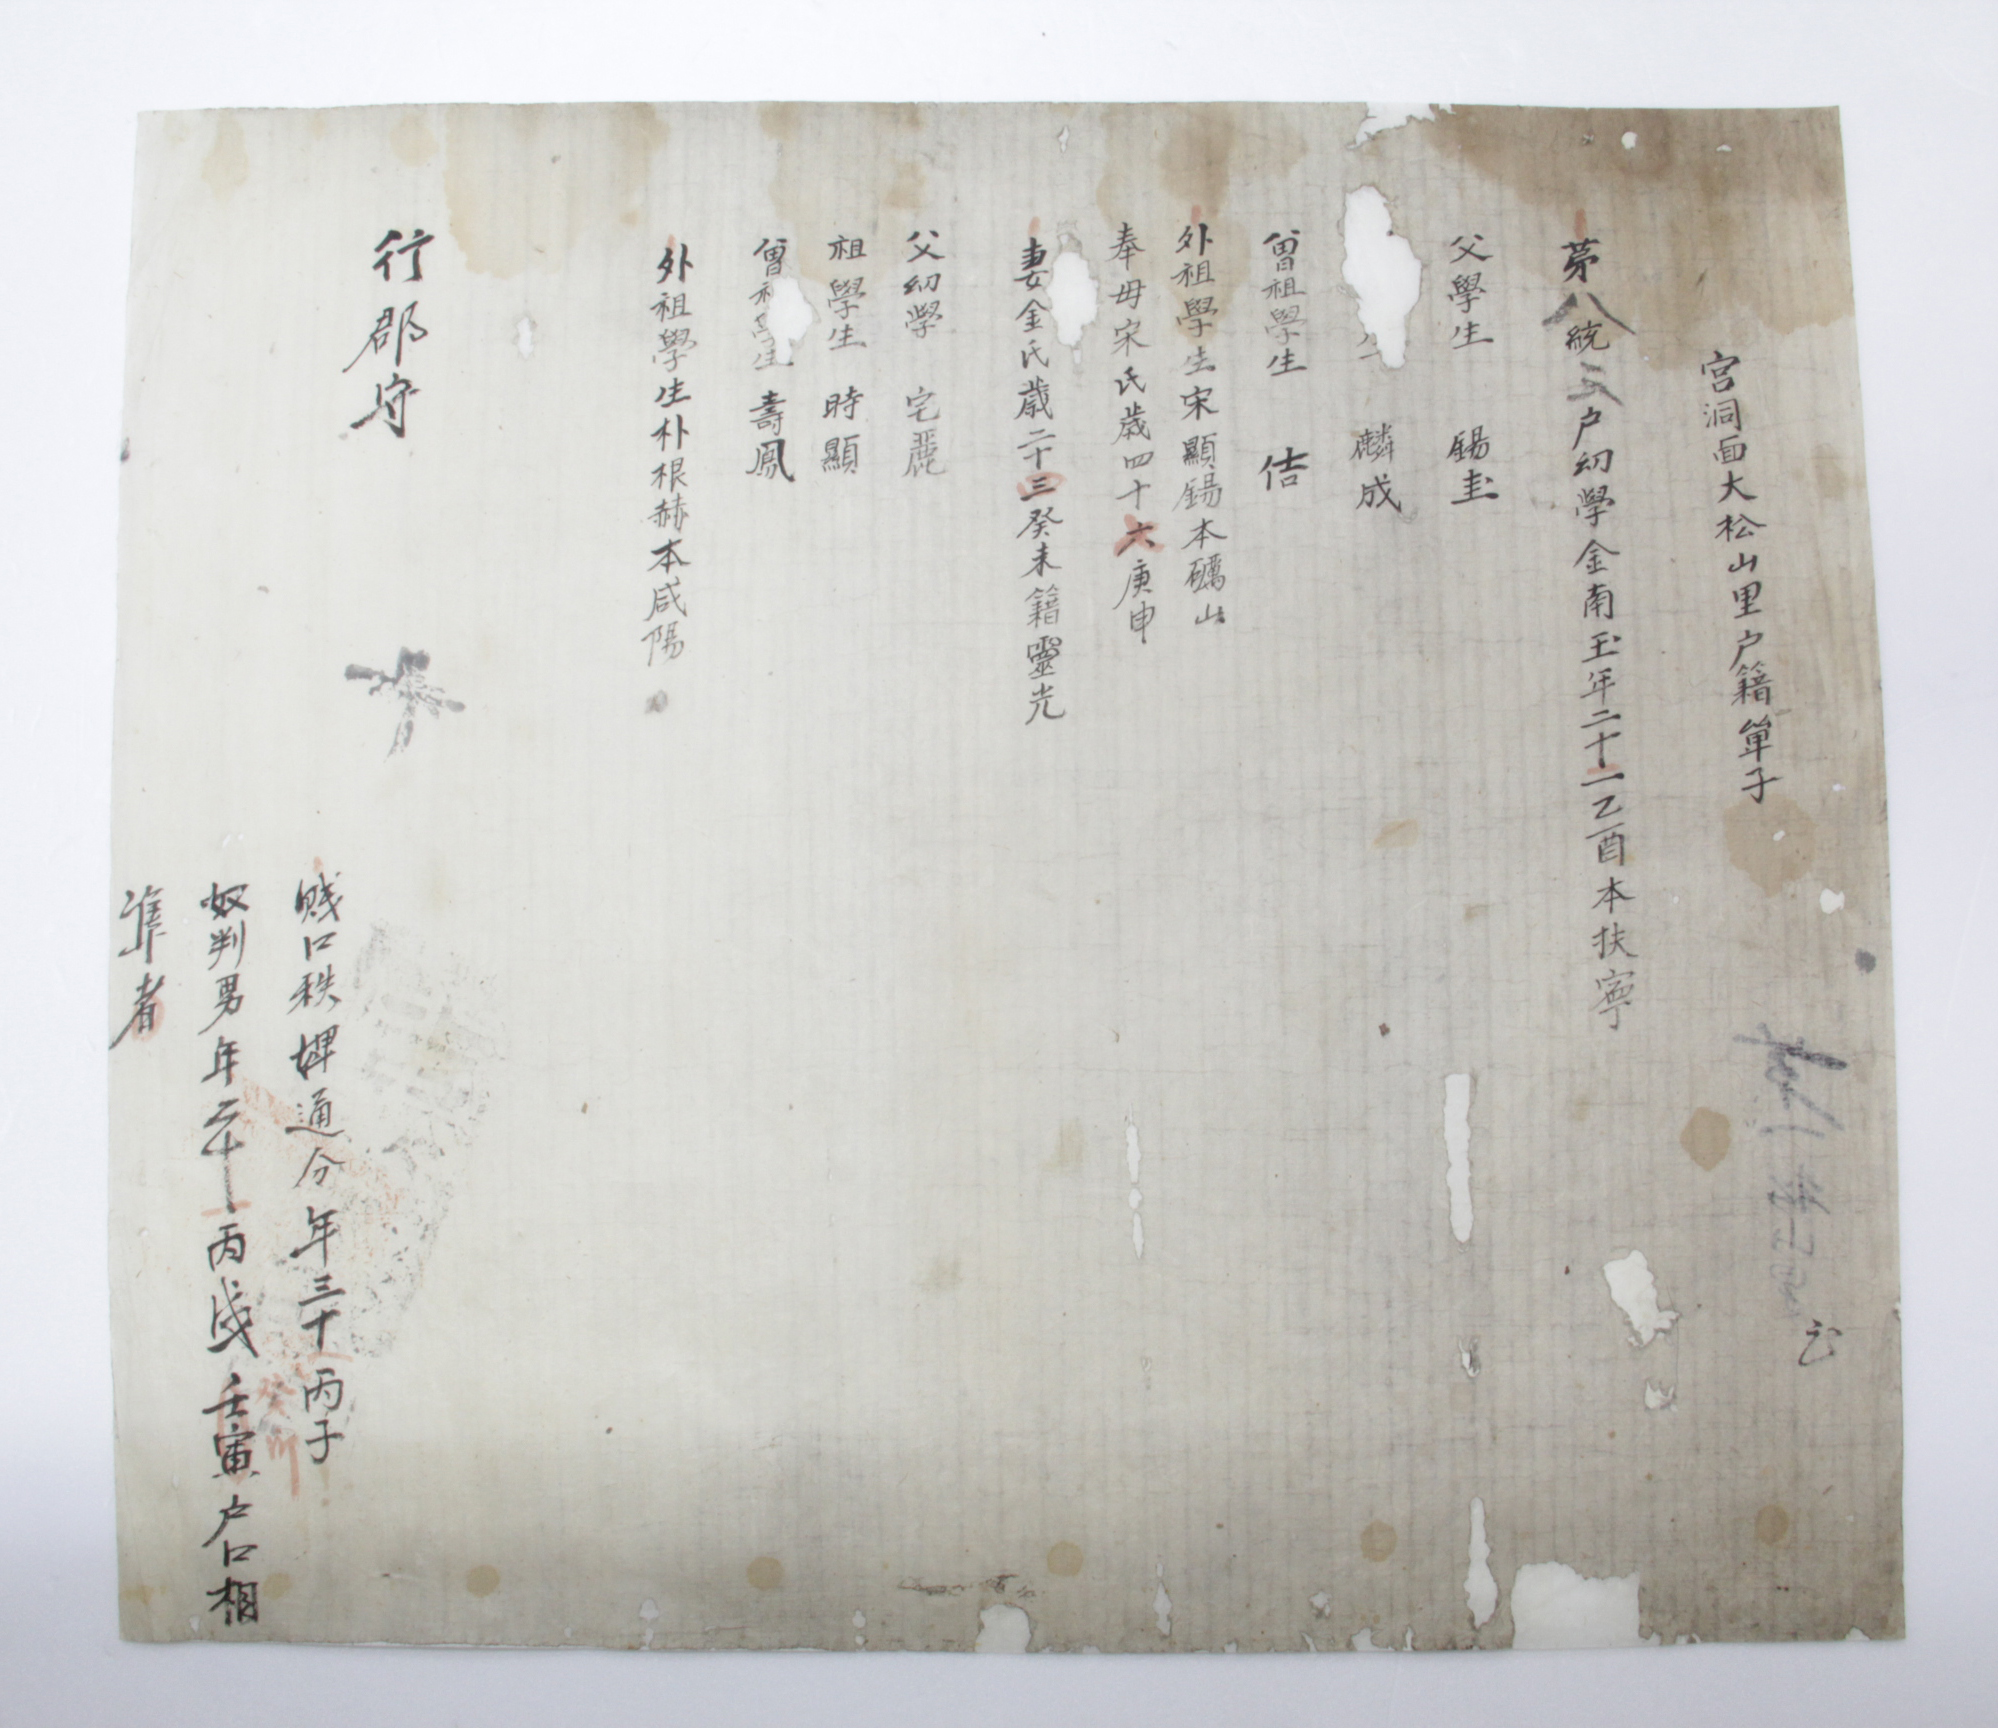 宮洞面大松山里户籍單子
第八統三户幼學金南玉年二十一乙酉本扶寧
父學生 錫圭
生 麟成
曾祖學生 佶
外祖學生宋顯錫本礪山
奉母宋氏歲四十六庚申
妻金氏歲二十三癸未籍靈光
父幼學 宅麗
祖學生 時顯
曾祖學生 壽鳳
外祖學生朴根赫本咸陽
行郡守
賤口秩婢通分年三十丙子
奴判男年二十一丙戌壬寅户口相
準者